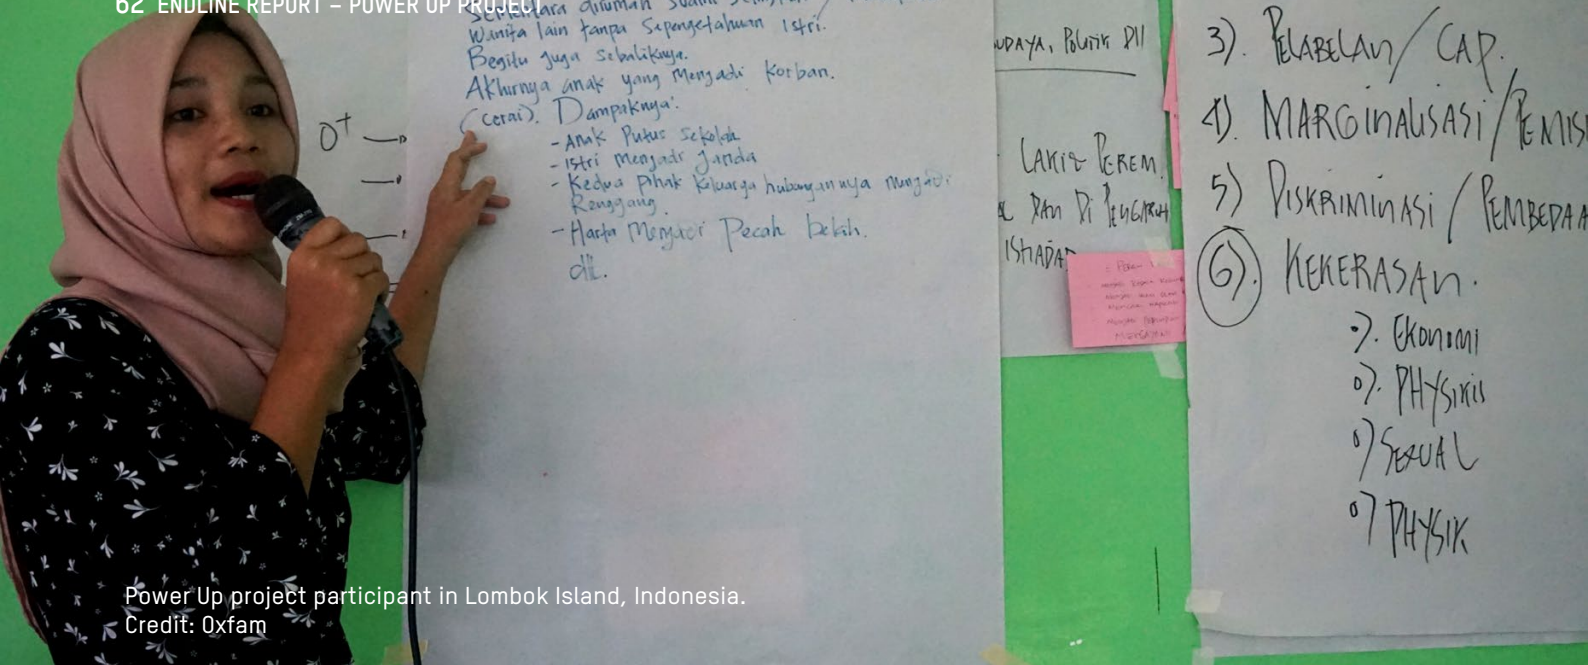 62 ENDLINE REPORT – POWER UP PROJECT
Sementara dirumah suami
Wanita lain tanpa Sepengetahuan Istri.
Begitu juga sebaliknya.
Akhirnya anak yang menjadi korban.
(cerai). Dampaknya:
- Anak Putus Sekolah
- Istri menjadi Janda
- Kedua Pihak Keluarga hubungannya menjadi
Renggang.
- Harta Menjadi Pecah belah.
dll.
UDAYA, Politik Dll
LAKI2 PEREM
DAN Di PENGARUH
3). PELABELAN / CAP.
4). MARGINALISASI / PEMIS
5) DISKRIMINASI / PEMBEDAA
6). KEKERASAN.
o). EKONOMI
o). PHYSIKIS
o) SEXUAL
o) PHYSIK
Power Up project participant in Lombok Island, Indonesia.
Credit: Oxfam